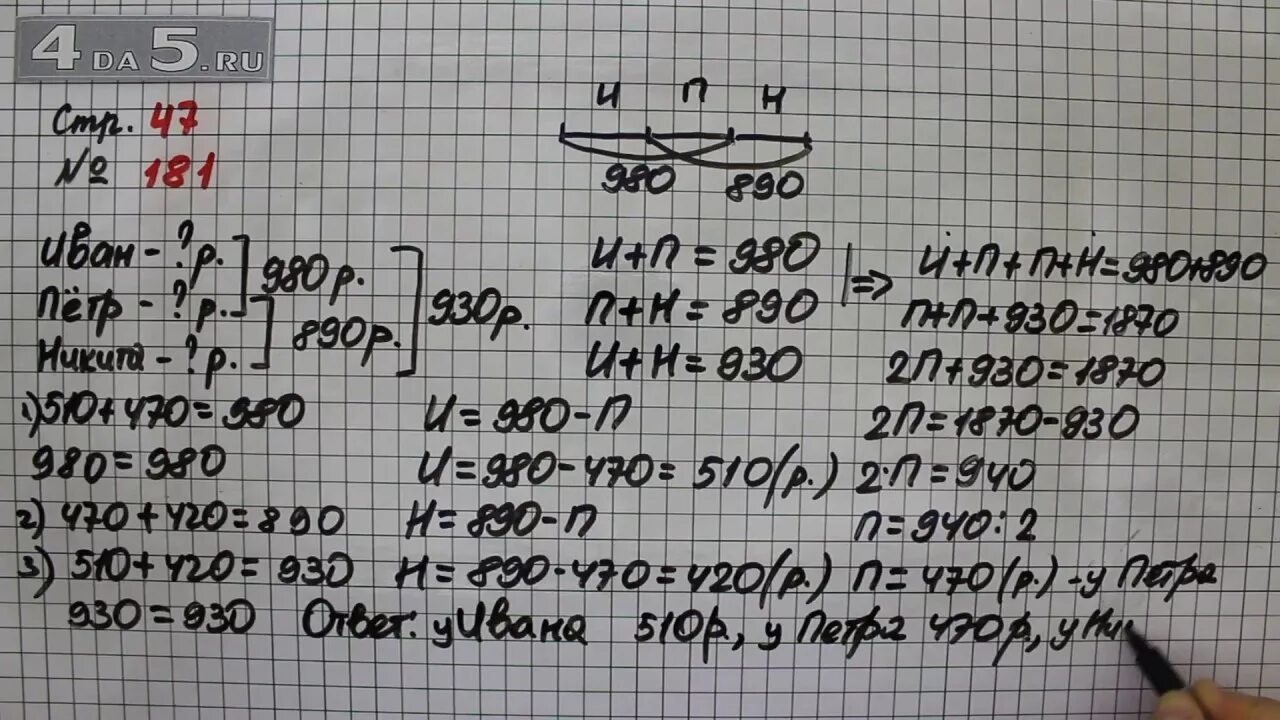 4DA5.RU
Стр. 47
№ 181
И П Н
980 890
Иван - ? р.
Пётр - ? р.
Никита - ? р.
980 р.
890 р.
930 р.
И + П = 980
П + Н = 890
И + Н = 930
=> И + П + П + Н = 980+890
П + П + 930 = 1870
2П + 930 = 1870
2П = 1870 - 930
2·П = 940
П = 940 : 2
П = 470 (р.) - у Петра
И = 980 - П
И = 980 - 470 = 510 (р.)
Н = 890 - П
Н = 890 - 470 = 420 (р.)
1) 510 + 470 = 980
980 = 980
2) 470 + 420 = 890
3) 510 + 420 = 930
930 = 930
Ответ: у Ивана 510 р., у Петра 470 р, у Ни